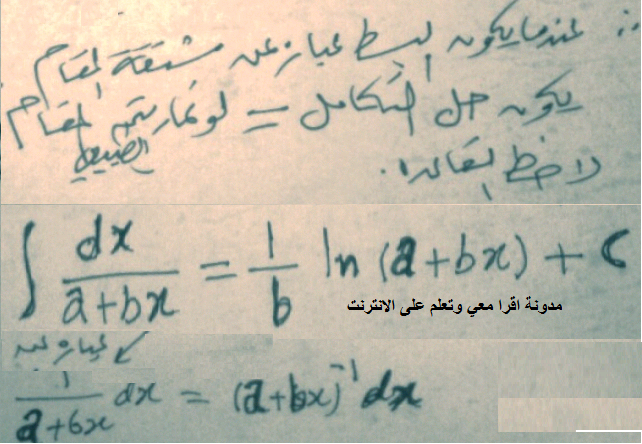 ∴ عندما يكون البسط عبارة عن مشتقة المقام
يكون حل التكامل = لوغاريتم المقام
الطبيعي
لاحظ القاعدة.
∫ dx / (a+bx) = 1/b ln (a+bx) + C
مدونة اقرا معي وتعلم على الانترنت
عبارة عن
1 / (a+bx) dx = (a+bx)^-1 dx